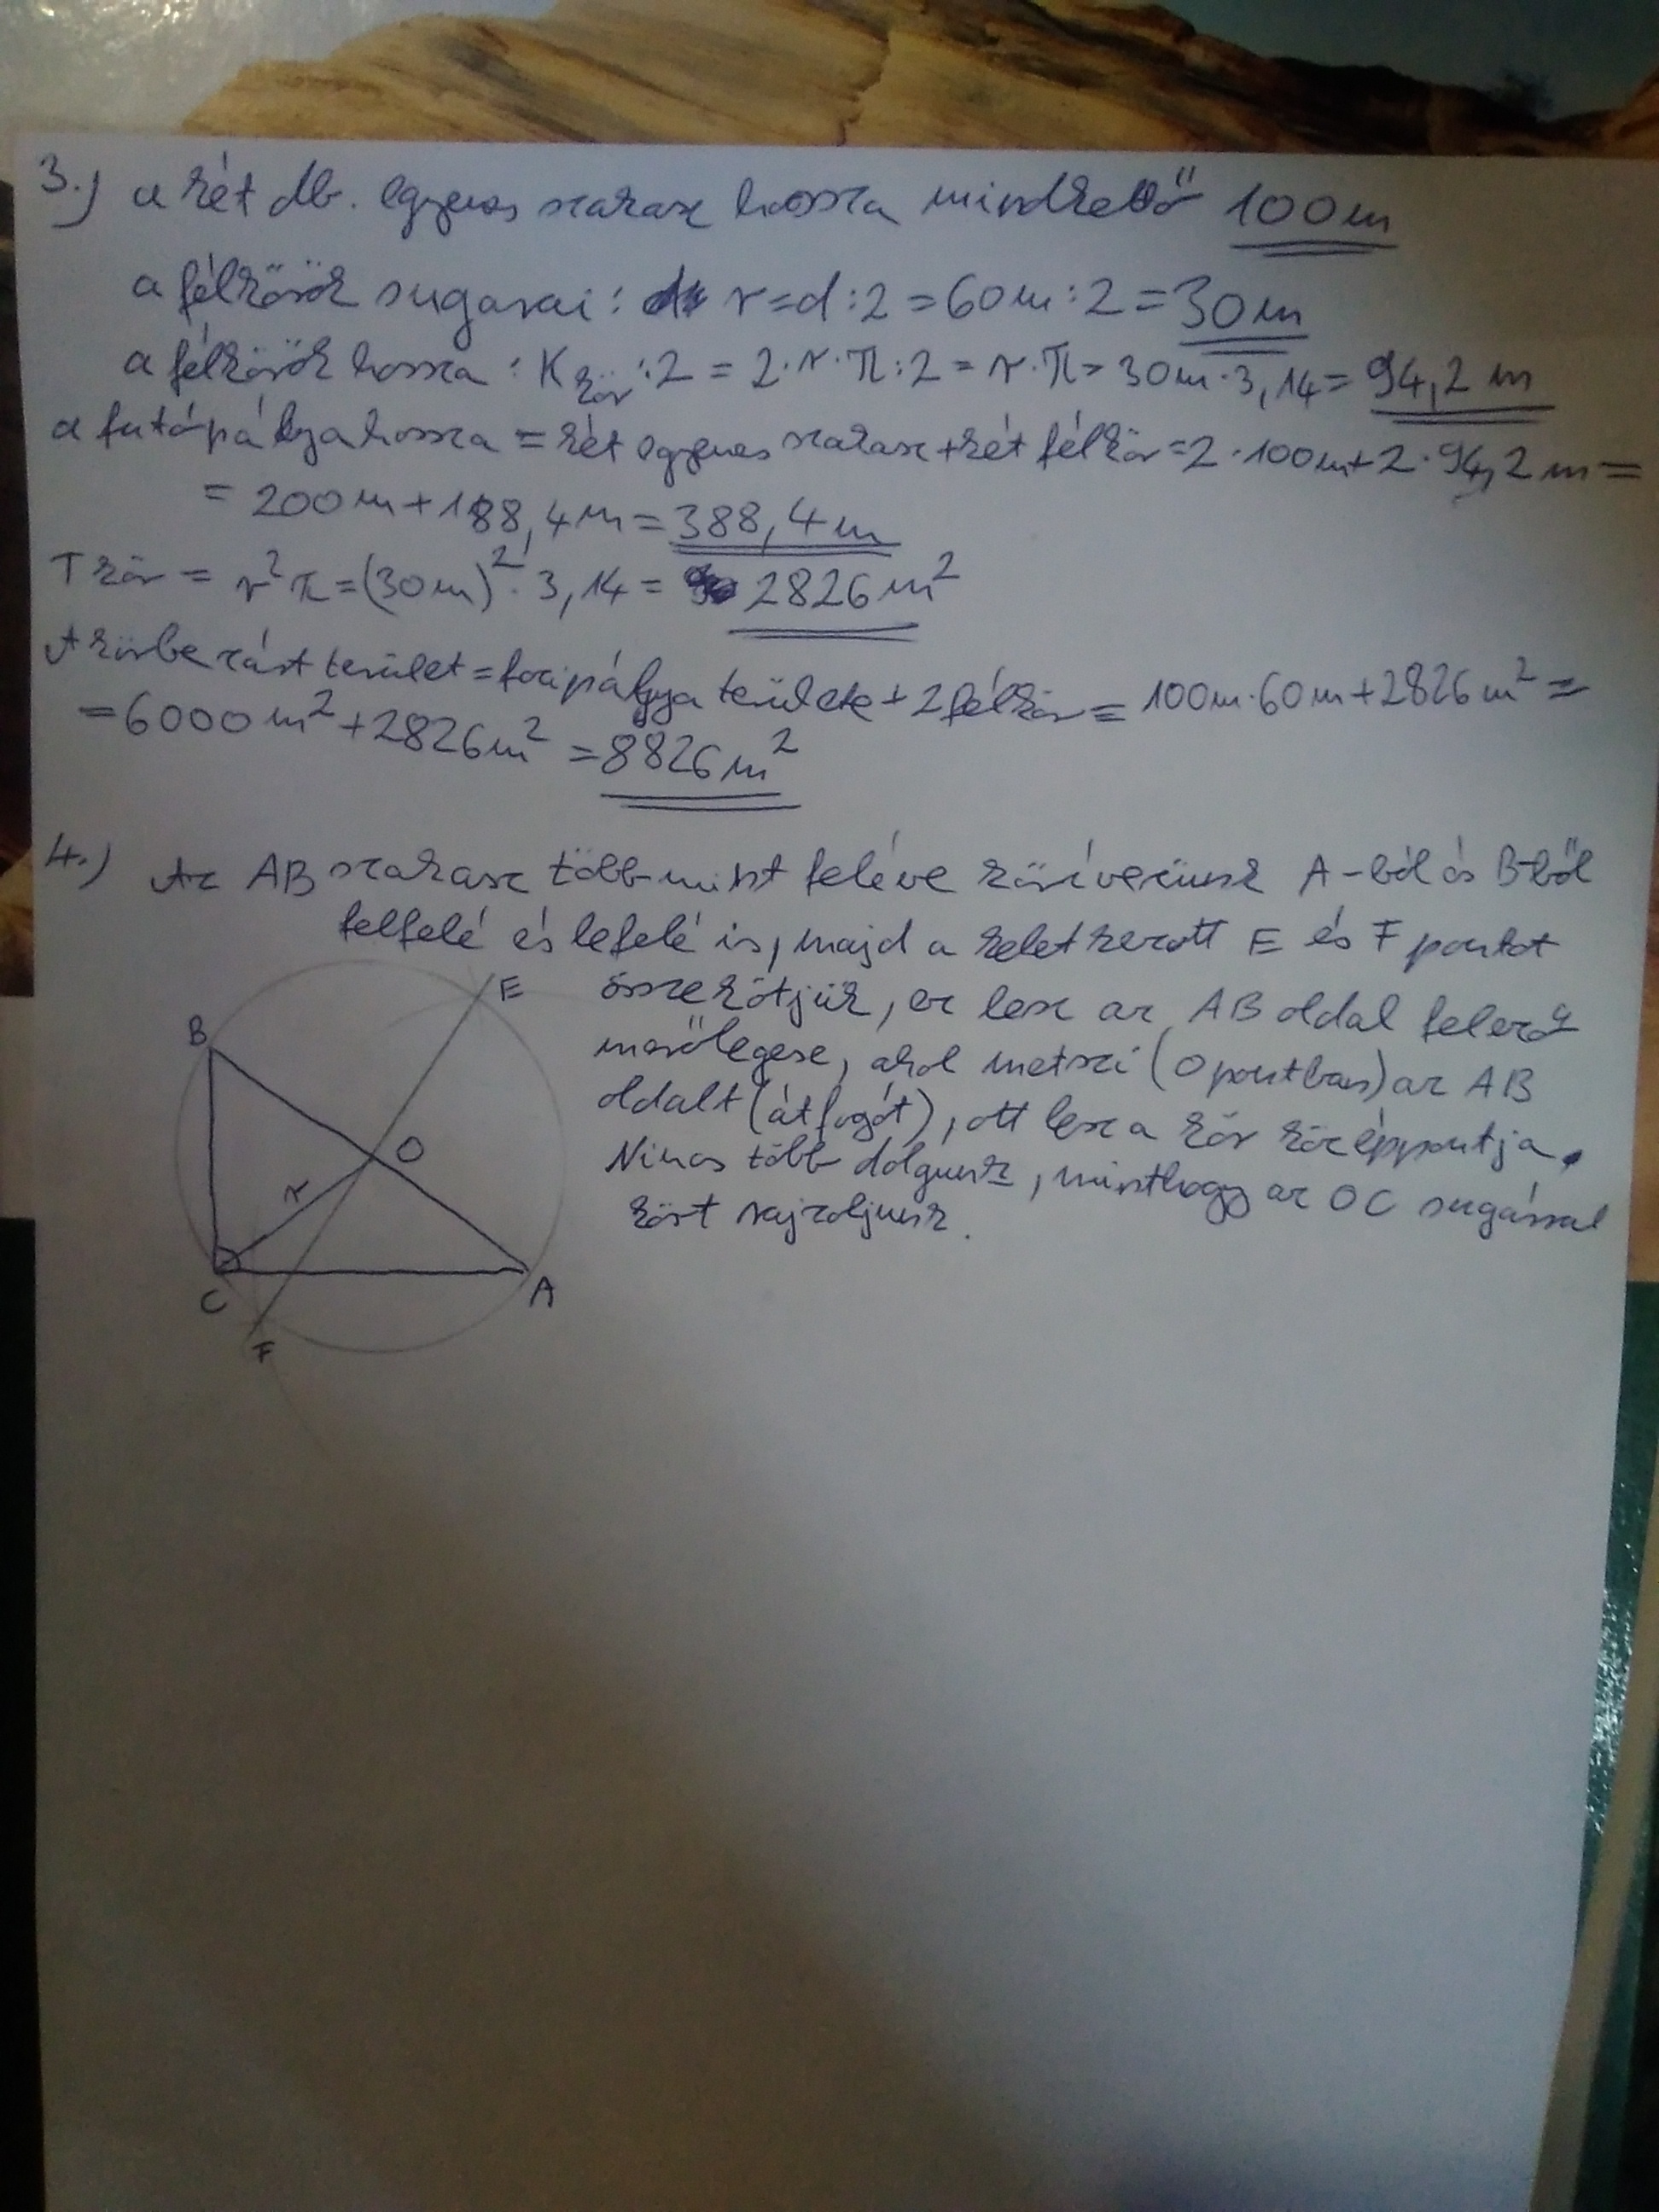 3.) a két db. egyenes szakasz hossza mindkettő 100m
a félkörök sugarai: r=d:2=60m:2=30m
a félkörök hossza: Kkör:2 = 2·r·π:2 = r·π= 30m·3,14= 94,2 m
a futópálya hossza = két egyenes szakasz+két félkör=2·100m+2·94,2m=
= 200m+188,4m=388,4m
Tkör = r²π=(30m)²·3,14= 2826m²
A körbezárt terület=focipálya területe+2félkör= 100m·60m+2826m²=
=6000m²+2826m²=8826m²
4.) Az AB szakasz több mint felével körívezünk A-ból és B-ből
felfelé és lefelé is, majd a keletkezett E és F pontot
összekötjük, ez lesz az AB oldal felező
merőlegese, ahol metszi (O pontban) az AB
oldalt (átfogót), ott lesz a kör középpontja.
Nincs több dolgunk, minthogy az OC sugárral
kört rajzoljunk.
E
B
O
r
C
A
F